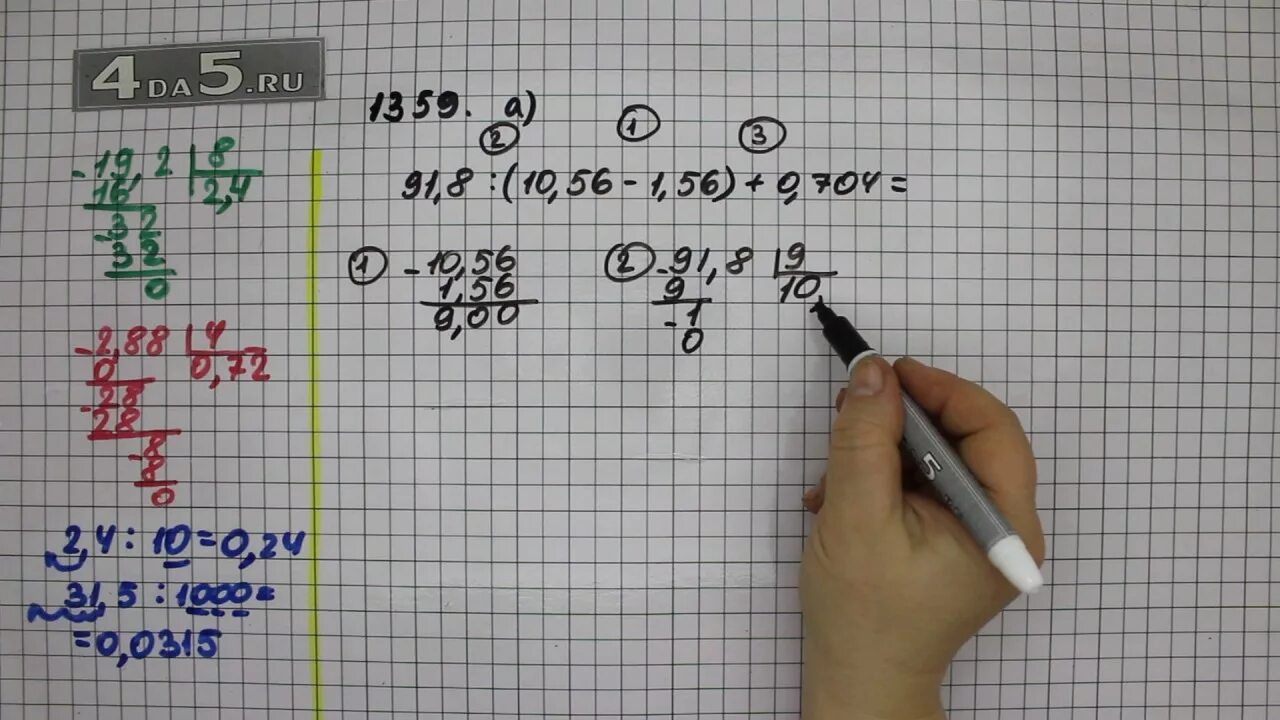 4DA5.RU
-19,2 | 8
16 2,4
-32
32
0
-2,88 | 4
0 0,72
-28
28
-8
8
0
2,4 : 10 = 0,24
31,5 : 1000 =
= 0,0315
1359. а)
② ① ③
91,8 : (10,56 - 1,56) + 0,704 =
① -10,56
1,56
9,00
② -91,8 | 9
9 10,
-1
0
5